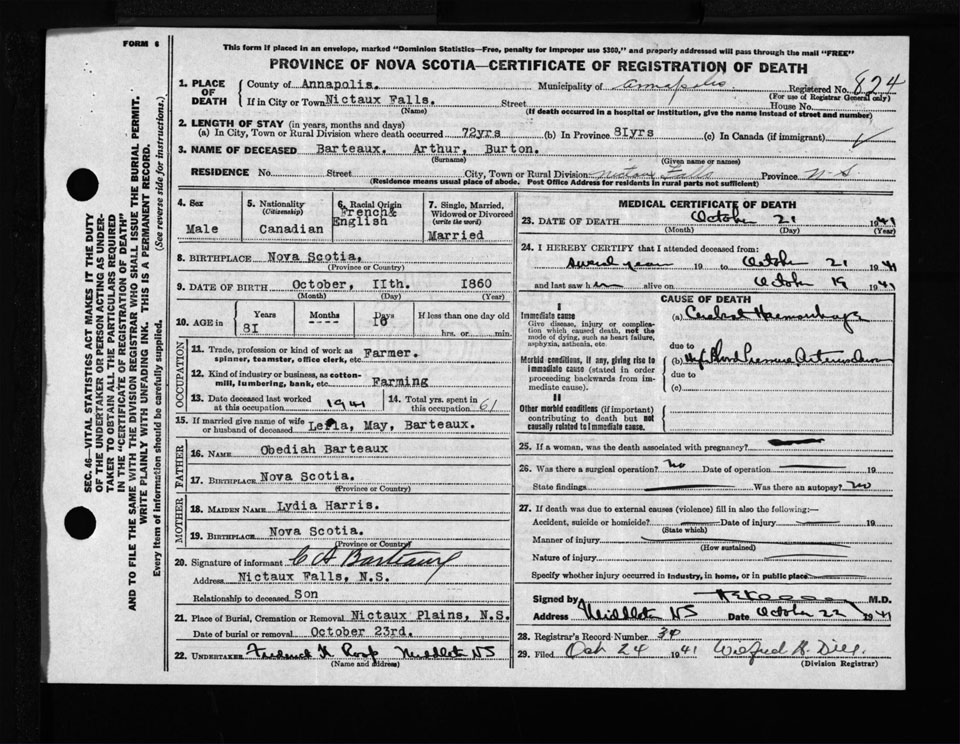 FORM 6
This form if placed in an envelope, marked "Dominion Statistics—Free, penalty for improper use $300," and properly addressed will pass through the mail "FREE"
PROVINCE OF NOVA SCOTIA—CERTIFICATE OF REGISTRATION OF DEATH
1. PLACE OF DEATH
County of Annapolis. Municipality of Annapolis Registered No. 824
(For use of Registrar General only)
If in City or Town Nictaux Falls. Street House No.
(Name) (If death occurred in a hospital or institution, give the name instead of street and number)
2. LENGTH OF STAY (in years, months and days)
(a) In City, Town or Rural Division where death occurred 72yrs (b) In Province 81yrs (c) In Canada (if immigrant)
3. NAME OF DECEASED Barteaux. Arthur, Burton.
(Surname) (Given name or names)
RESIDENCE No. Street City, Town or Rural Division Nictaux Falls Province N-S
(Residence means usual place of abode. Post Office Address for residents in rural parts not sufficient)
4. Sex
Male
5. Nationality
(Citizenship)
Canadian
6. Racial Origin
French&
English
7. Single, Married,
Widowed or Divorced
(write the word)
Married
8. BIRTHPLACE Nova Scotia,
(Province or Country)
9. DATE OF BIRTH October, 11th. 1860
(Month) (Day) (Year)
10. AGE in
Years Months Days If less than one day old
81 --- 10 hrs. or min.
OCCUPATION
11. Trade, profession or kind of work as
spinner, teamster, office clerk, etc. Farmer.
12. Kind of industry or business, as cotton-
mill, lumbering, bank, etc. Farming
13. Date deceased last worked
at this occupation 1941
14. Total yrs. spent in
this occupation 61
15. If married give name of wife
or husband of deceased May, Barteaux.
FATHER
16. NAME Obediah Barteaux
17. BIRTHPLACE Nova Scotia.
(Province or Country)
MOTHER
18. MAIDEN NAME Lydia Harris.
19. BIRTHPLACE Nova Scotia.
(Province or Country)
20. Signature of informant C A Barteaux
Address Nictaux Falls, N.S.
Relationship to deceased Son
21. Place of Burial, Cremation or Removal Nictaux Plains, N.S.
Date of burial or removal October 23rd.
22. UNDERTAKER Frederick N Roop Middleton NS
(Name and address)
MEDICAL CERTIFICATE OF DEATH
23. DATE OF DEATH October 21 1941
(Month) (Day) (Year)
24. I HEREBY CERTIFY that I attended deceased from:
several years 19 to October 21 1941
and last saw him alive on October 19 1941
CAUSE OF DEATH
I
Immediate cause
Give disease, injury or complica-
tion which caused death, not the
mode of dying, such as heart failure,
asphyxia, asthenia, etc.
(a) Cerebral Haemorrhage
due to
Morbid conditions, if any, giving rise to
immediate cause (stated in order
proceeding backwards from im-
mediate cause).
(b) High Blood Pressure
due to
(c)
II
Other morbid conditions (if important)
contributing to death but not
causally related to immediate cause.
25. If a woman, was the death associated with pregnancy?
26. Was there a surgical operation? no Date of operation 19
State findings Was there an autopsy? no
27. If death was due to external causes (violence) fill in also the following:—
Accident, suicide or homicide? Date of injury 19
(State which)
Manner of injury
(How sustained)
Nature of injury
Specify whether injury occurred in industry, in home, or in public place
Signed by M.D.
Address Middleton NS Date October 22 1941
28. Registrar's Record Number 34
29. Filed Oct 24 1941
(Division Registrar)
SEC. 46—VITAL STATISTICS ACT MAKES IT THE DUTY
OF THE UNDERTAKER OR PERSON ACTING AS UNDER-
TAKER TO OBTAIN ALL THE PARTICULARS REQUIRED
IN THE "CERTIFICATE OF REGISTRATION OF DEATH"
AND TO FILE THE SAME WITH THE DIVISION REGISTRAR WHO SHALL ISSUE THE BURIAL PERMIT.
WRITE PLAINLY WITH UNFADING INK. THIS IS A PERMANENT RECORD.
Every item of information should be carefully supplied. (See reverse side for instructions.)